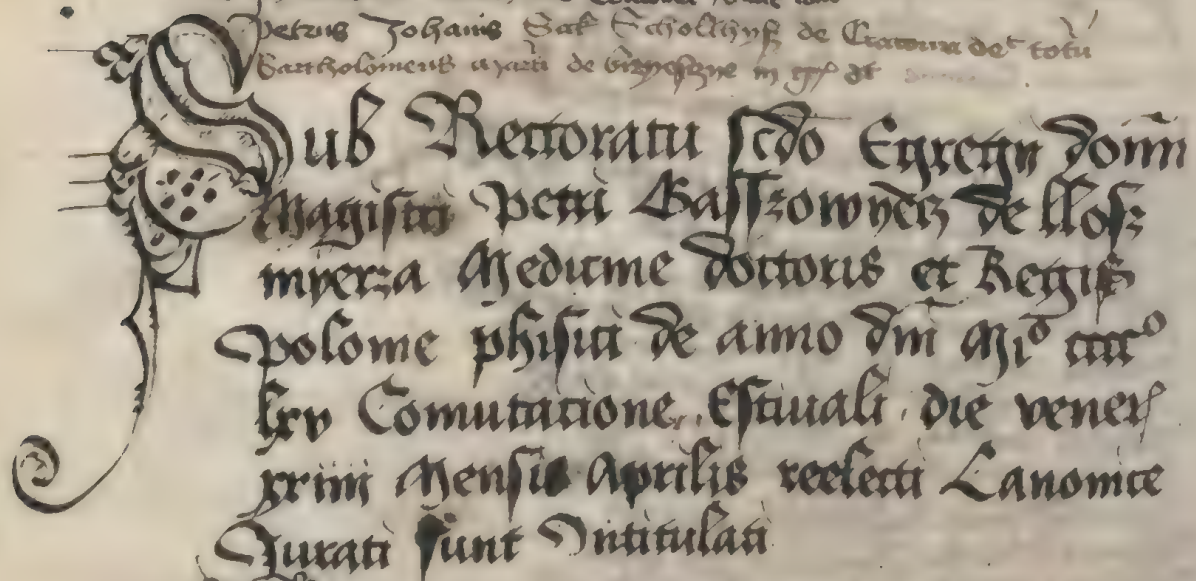 Petrus Johanis de Cracouia det totu
Bartholomeus de in gr dt
Sub Rectoratu scdo Egregij domi
Magistri Petri Gasszowyecz de llosz
myerza Medicine doctoris et Regis
Polonie phisici de anno dni Mo cccco
lxv Comutacione Estiuali die vener
xxiiij Mensis Aprilis reelecti Canonice
Jurati sunt Intitulati